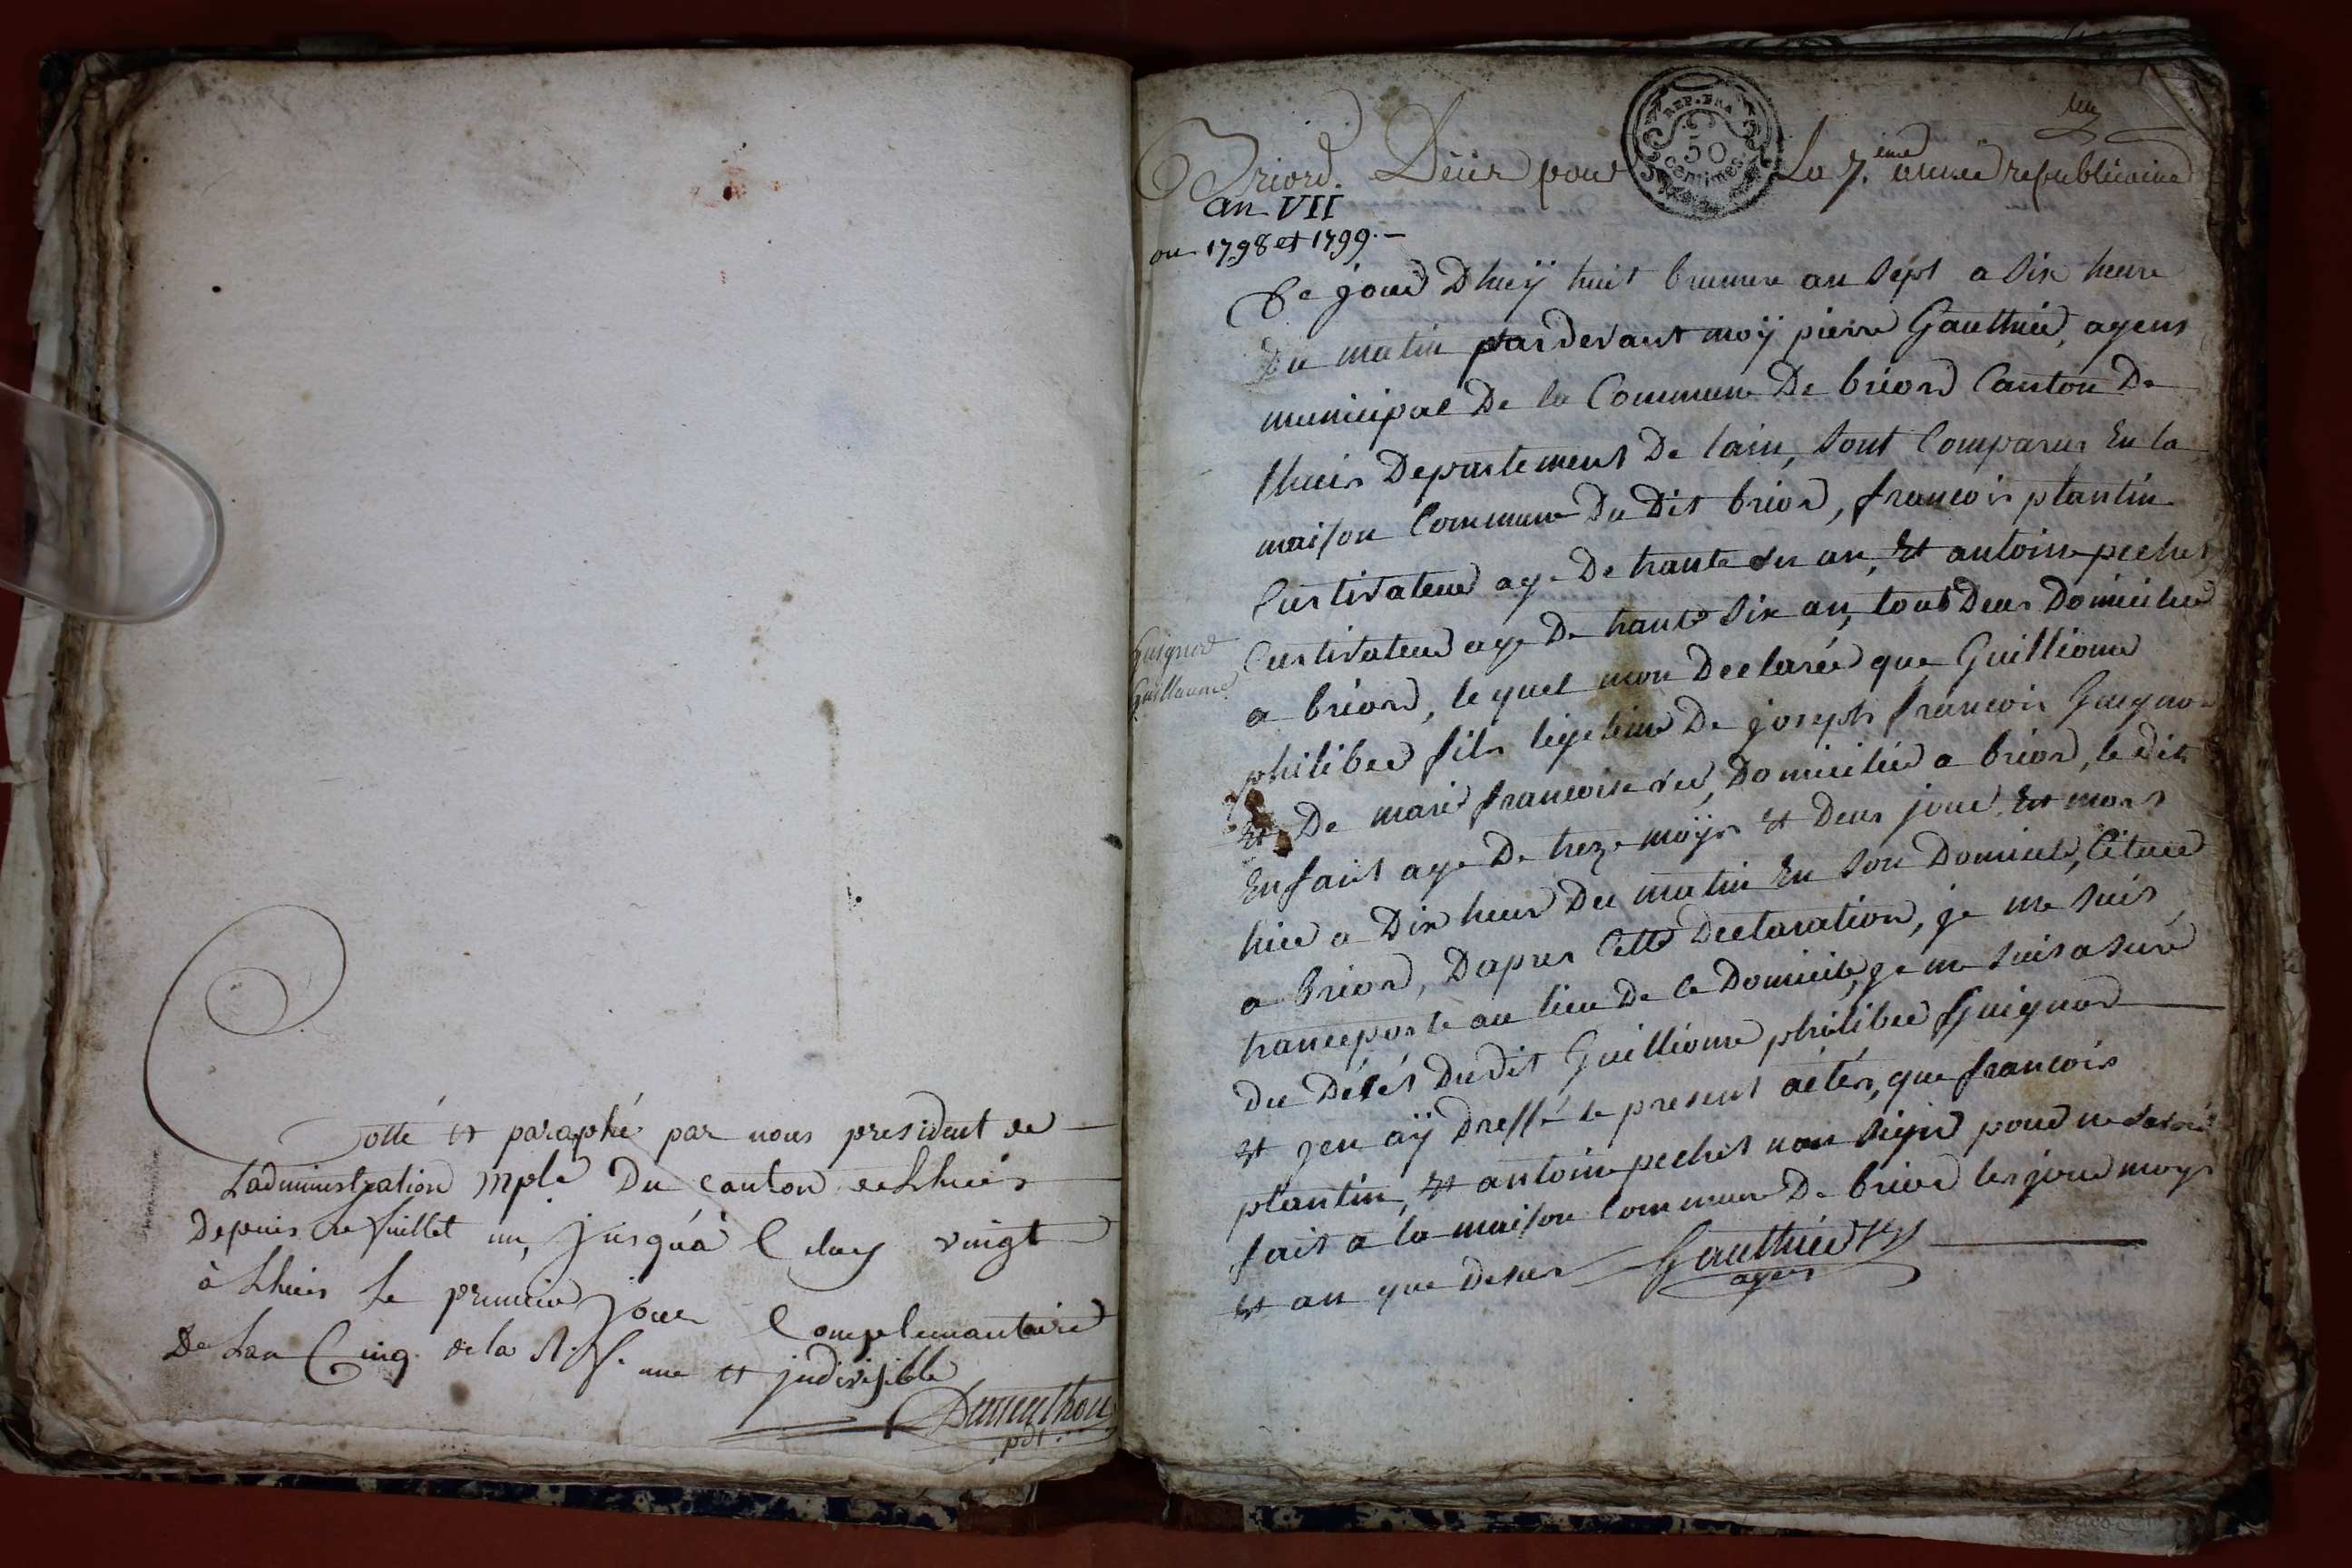 Cotté et paraphé par nous president de
Ladministration mple Du canton de Lhuis
Depuis ce fuillet un, jusqu'à celuy vingt
à Lhuis Le premier jour Complemantaire
De Lan Cinq de la R. f. une et jndivisible
pdt.
un
Briord. Décès pour La 7.ème année republicaine
REP. FRA
50
Centimes
an VII
ou 1798 et 1799.—
Ce jourd Dhuÿ huit brumere an Sept a Six heure
Du matin pardevant moÿ pierre Gauthier, agens
municipal De la Commune De briord Canton De
lhuis Departement De lain, Sont Comparus En la
maison Commune Du Dit briord, francois plantin
Cultivateur age De trante un an, Et antoine pechet
Guignod
Guillaume
Cultivateur age De trante Six an, tout Deus Domicilié
a briord, lequel mon Declarée que Guilliome
philiber fils legetime De joseph francois Guignod
Et De marie francoise Domicilié a briord, le Dit
Enfant age De treze moÿs Et Deus jour Est mort
hier a Dix heur Du matin En Son Domicile, Cituee
a briord, Dapres Cette Declaration, je me Suis
transeporte au lieu De ce Domicile, je me Suis asuré
Du Décés Dudit Guilliome philiber Guignod
Et jen aÿ Dressé le present actes, que francois
plantin, Et antoine pechet non Signé pour ne Savoir
fait a la maison Commune De briord les jour moys
Et an que Desus Gauthier
agens